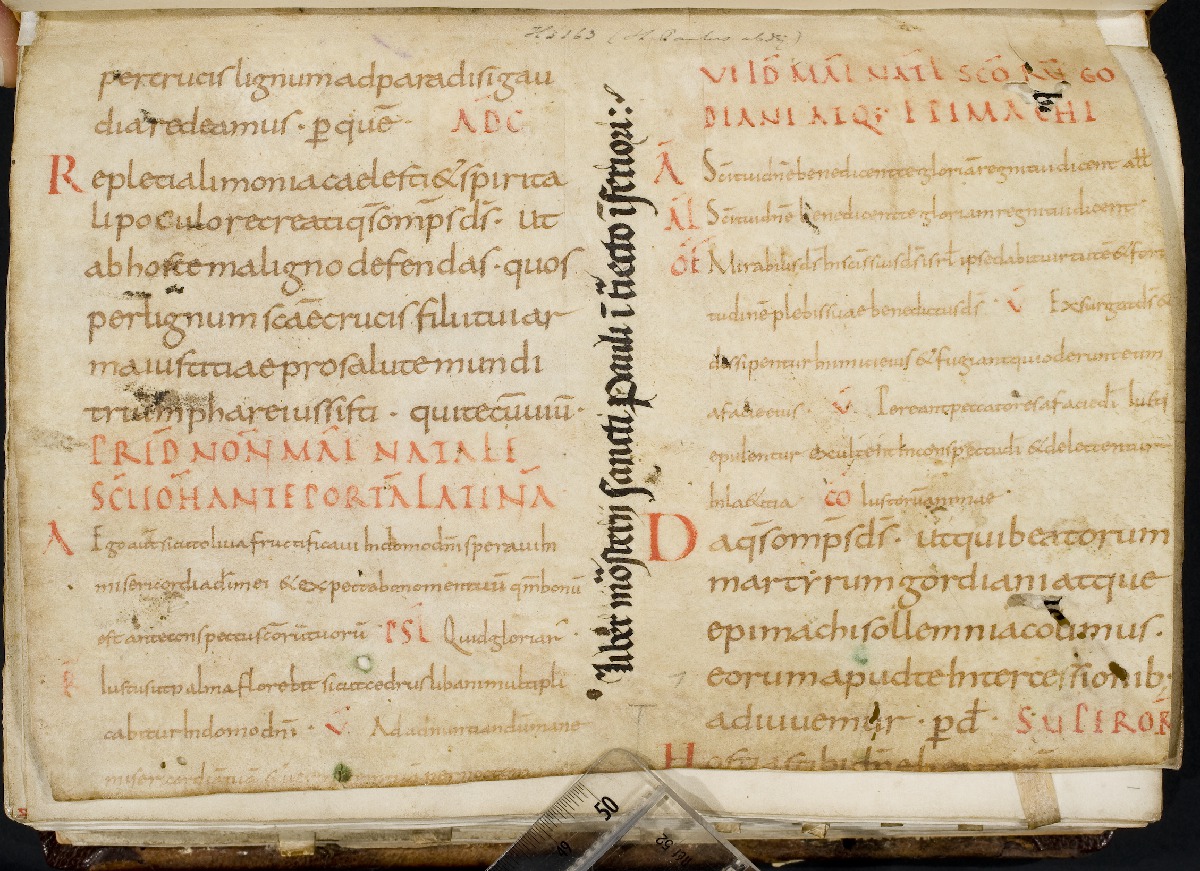 Hs 163 (St. Paulus abdij)
per crucis lignum ad paradisi gau
dia redeamus · p̄ quē · AD C̄
Repleti alimonia caelesti & spirita
li poculo recreati q̄s om̄ps d̄s · ut
ab hoste maligno defendas · quos
per lignum scāe crucis filii tui ar
ma iustitiae pro salute mundi
triumphare iussisti · qui tecū uiuū ·
PRID̄ NOÑ MAĪ NATALE
SC̄I IOH̄ ANTE PORTĀ LATINĀ
A Ego autē sicut oliua fructificaui in domo dn̄i speraui in
misericordia dī mei & expectabo nomen tuū qm̄ bonū
est ante conspectu scōrū tuorū PSL Quid gloriar̄ ·
R̄ Iustus ut palma florebit sicut cedrus libani multipli
cabitur in domo dn̄i · V̄ Ad adnuntiandū mane
misericordiā tuā
VI ID̄ MAĪ NATL SCŌRŪ GO
DIANI ATQ; EPIMACHI
Ā Sc̄i tui dn̄e benedicent te gloriā regni tui dicent all̄
ĀL Sc̄i tui dn̄e benedicent te gloriam regni tui dicent
OF̄ Mirabilis d̄s in sc̄is suis d̄s isrl̄ ipse dabit uirtutē & forti
tudinē plebis suae benedictus d̄s · V̄ Exsurgat d̄s &
dissipentur inimici eius & fugiant qui oderunt eum
a facie eius · V̄ Pereant peccatores a facie dī iusti
epulentur & exultent in conspectu dī & delectentur
in laetitia · CO Iustorū animae ·
Da q̄s om̄ps d̄s · ut qui beatorum
martyrum gordiani atque
epimachi sollemnia colimus ·
eorum apud te intercessionib;
adiuuemur · p̄ d̄ · SUPER OB̄
Hostias tibi dn̄e
Liber mōsterij sancti Pauli ī tiecto īferiori: